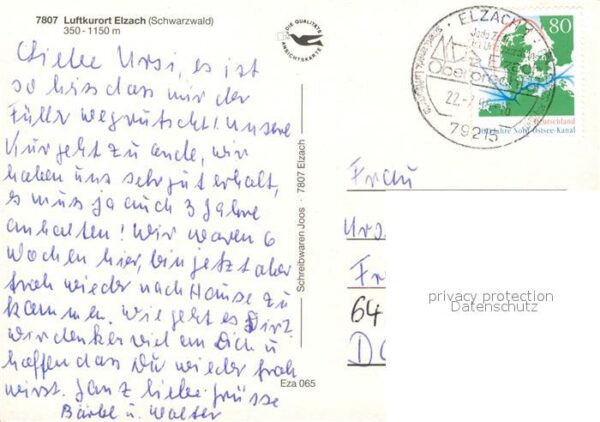 7807 Luftkurort Elzach (Schwarzwald)
350-1150 m
DIE QUALITÄTS
ANSICHTSKARTE
Liebe Ursi, es ist
so hiss dass mir der
Füller wegrutscht! Unsere
Kur geht zu ende, wir
haben uns sehr gut erhalt,
es muss ja auch 3 Jahre
anhalten! Wir waren 6
Wochen hier, bin jetzt aber
froh wieder nach Hause zu
kommen. Wie geht es Dir?
wir denken viel an Dich u
hoffen dass Du wieder froh
wirst. Ganz liebe grüsse
Bärbel u. Walter
Schreibwaren Joos · 7807 Elzach
Eza 065
ELZACH
79215
80
Deutschland
Jahre Nord-Ostsee-Kanal
Frau
Urs
Fr
64
privacy protection
Datenschutz